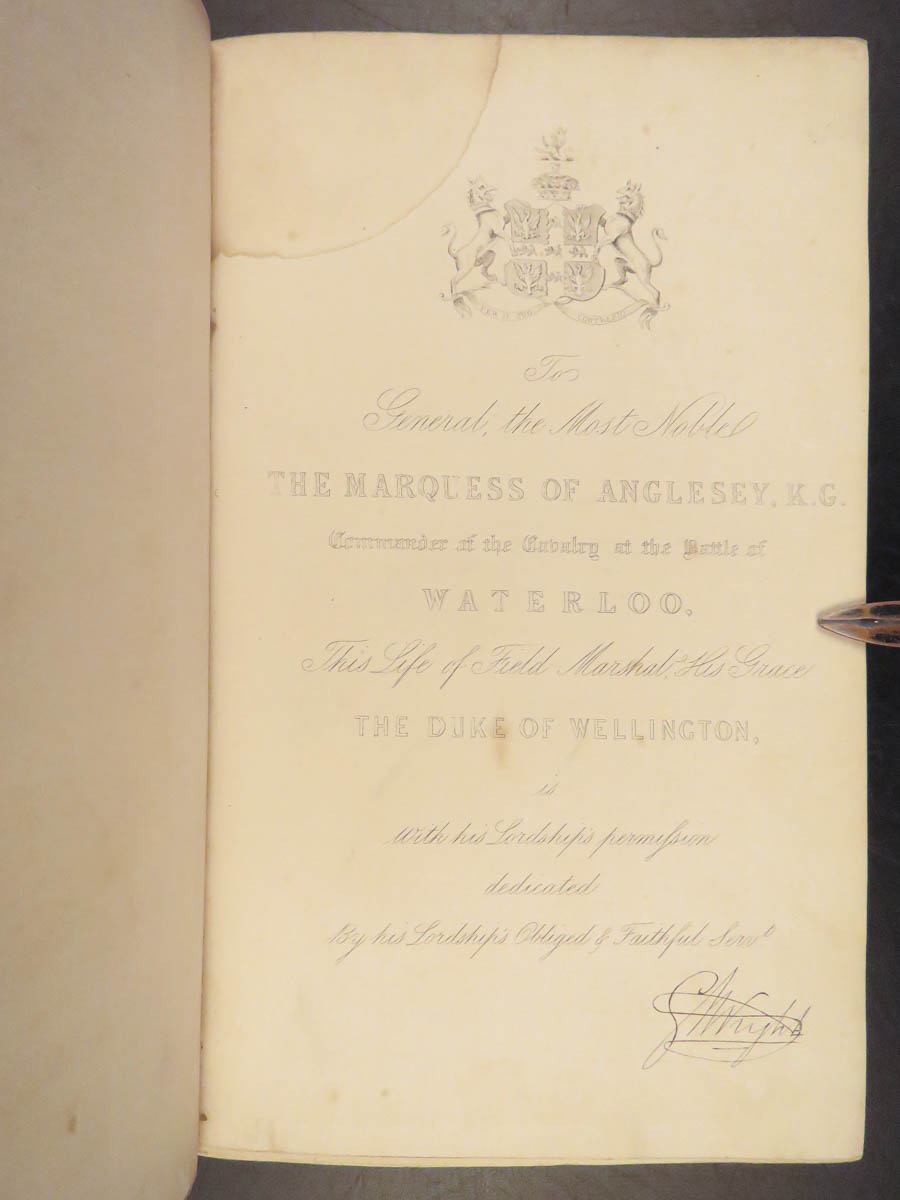 PER IL SUO CONTRARIO
To
General, the Most Noble
THE MARQUESS OF ANGLESEY, K.G.
Commander of the Cavalry at the Battle of
WATERLOO,
This Life of Field Marshal, His Grace
THE DUKE OF WELLINGTON,
is
with his Lordship's permission
dedicated
By his Lordship's Obliged & Faithful Servt
GNWright